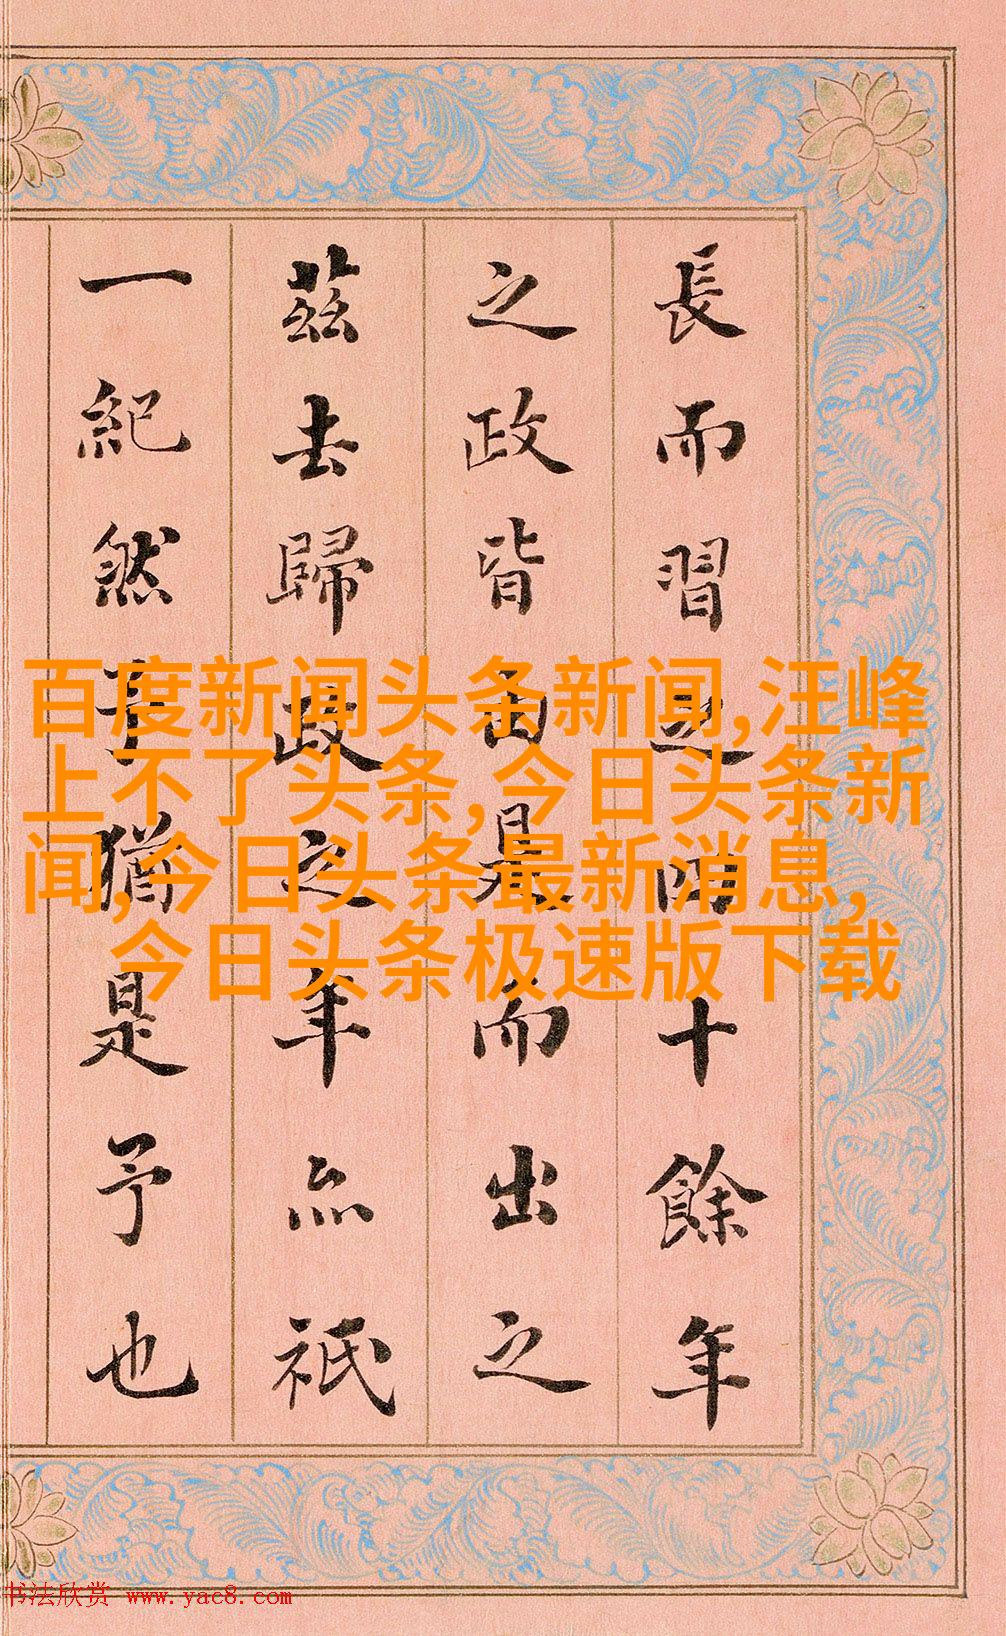 長而習之四十餘年
之政皆由是而出之
茲去歸政之年亦祇
一紀然予猶是予也
百度新闻头条新闻,汪峰
上不了头条,今日头条新
闻,今日头条最新消息,
今日头条极速版下载
书法欣赏 www.yac8.com